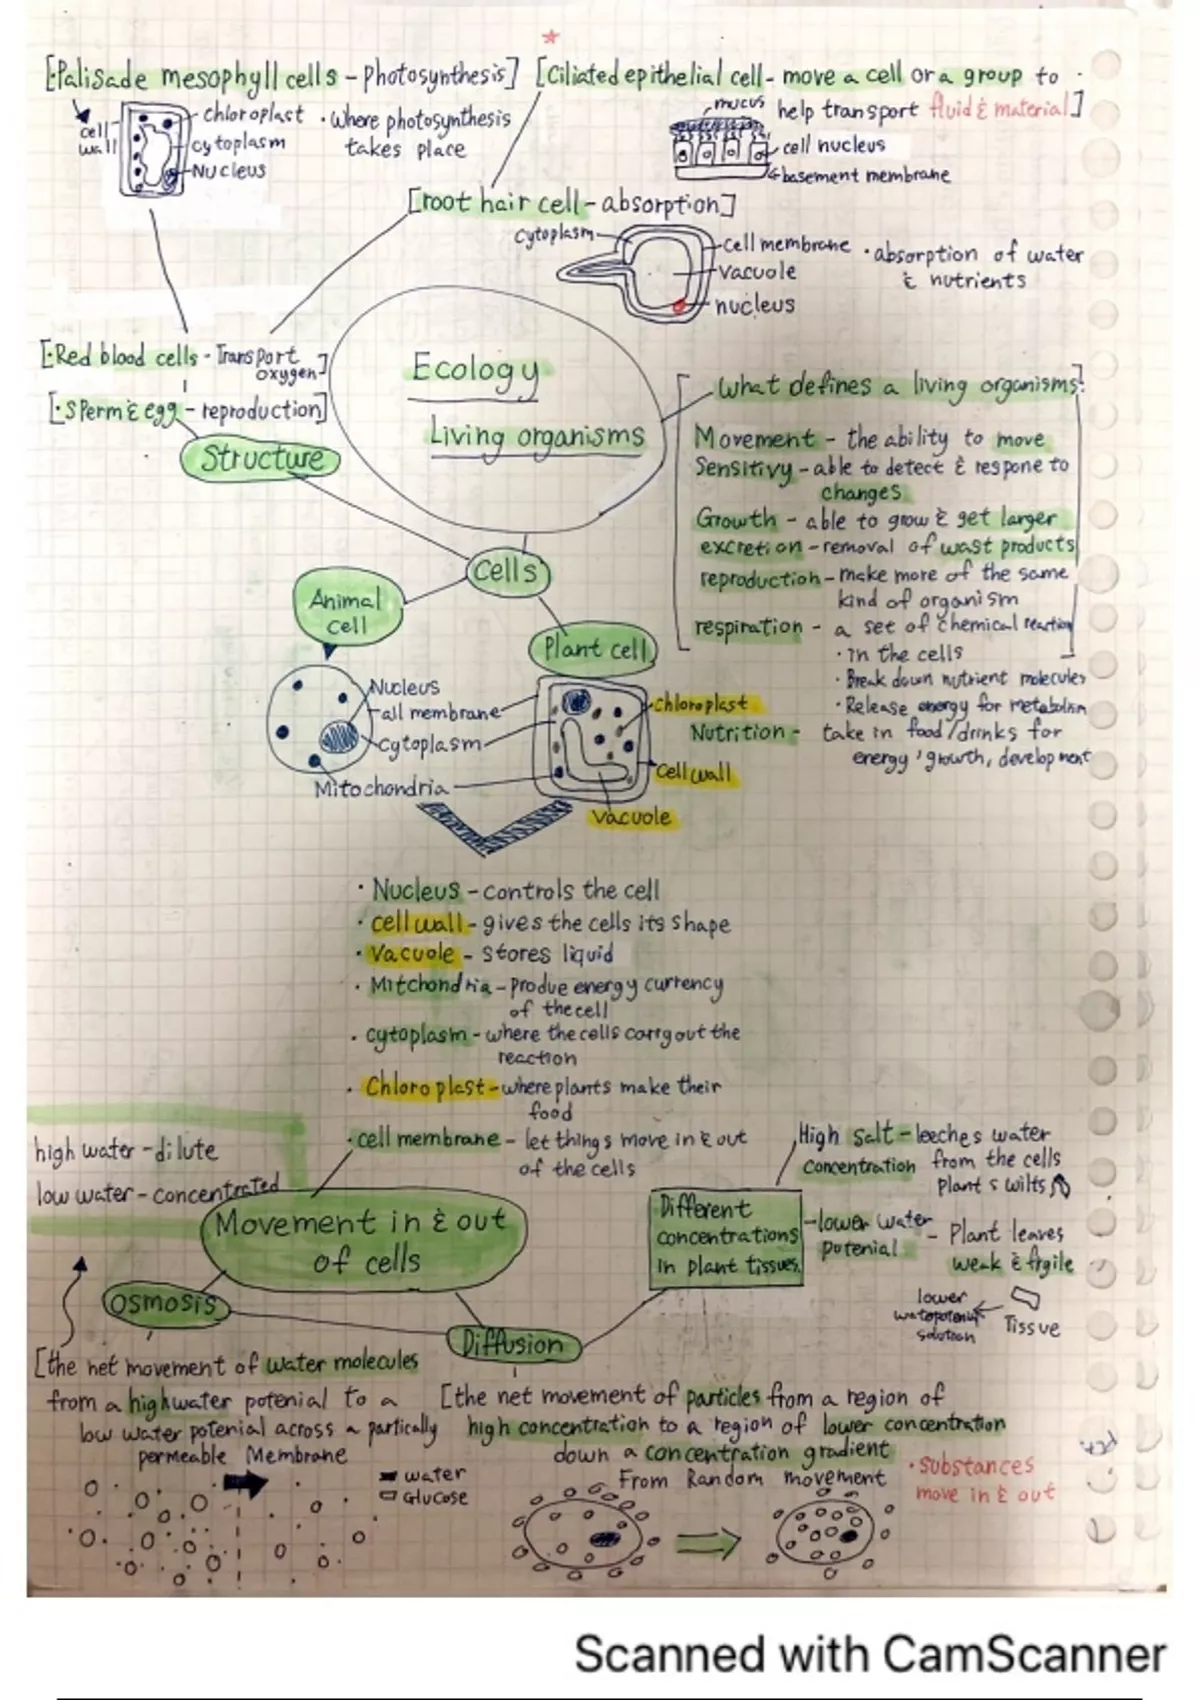 [·Palisade mesophyll cells - photosynthesis]
cell wall
chloroplast
cytoplasm
Nucleus
·where photosynthesis
takes place
[Ciliated epithelial cell - move a cell or a group to
help transport fluid & material]
mucus
cell nucleus
basement membrane
[root hair cell - absorption]
cytoplasm
cell membrane
vacuole
nucleus
·absorption of water
& nutrients
[·Red blood cells - Transport
oxygen]
[·Sperm & egg - reproduction]
Structure
Ecology
Living organisms
what defines a living organisms?
Movement - the ability to move
Sensitivy - able to detect & respone to
changes
Growth - able to grow & get larger
excretion - removal of wast products
reproduction - make more of the same
kind of organism
respiration - a set of chemical reaction
·in the cells
·Break down nutrient molecules
·Release energy for metabolism
Nutrition - take in food/drinks for
energy, growth, development
Cells
Animal
cell
Plant cell
Nucleus
all membrane
cytoplasm
Mitochondria
Chloroplast
Cell wall
vacuole
·Nucleus - controls the cell
·cell wall - gives the cells its shape
·Vacuole - stores liquid
·Mitchondria - produe energy currency
of the cell
·cytoplasm - where the cells carry out the
reaction
·Chloroplast - where plants make their
food
·cell membrane - let things move in & out
of the cells
high water - dilute
low water - concentrated
Movement in & out
of cells
Osmosis
Diffusion
Different
concentrations
in plant tissues.
High salt - leeches water
concentration from the cells
plant s wilts
-lower water
potenial
- Plant leaves
weak & frgile
lower
solution
Tissue
[the net movement of water molecules
from a high water potenial to a
low water potenial across a partically
permeable Membrane
water
Glucose
[the net movement of particles from a region of
high concentration to a region of lower concentration
down a concentration gradient
From Random movement
·substances
move in & out
Scanned with CamScanner